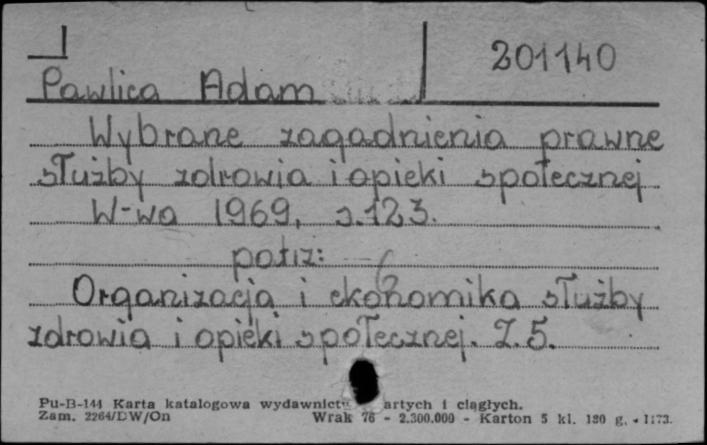 201140
Pawlica Adam
Wybrane zagadnienia prawne
służby zdrowia i opieki społecznej
W-wa 1969, s.123.
patrz:
Organizacja i ekonomika służby
zdrowia i opieki społecznej. Z.5.
Pu-B-144 Karta katalogowa wydawnict artych i ciągłych.
Zam. 2264/DW/On Wrak 76 - 2.300.000 - Karton 5 kl. 180 g. - 1173.